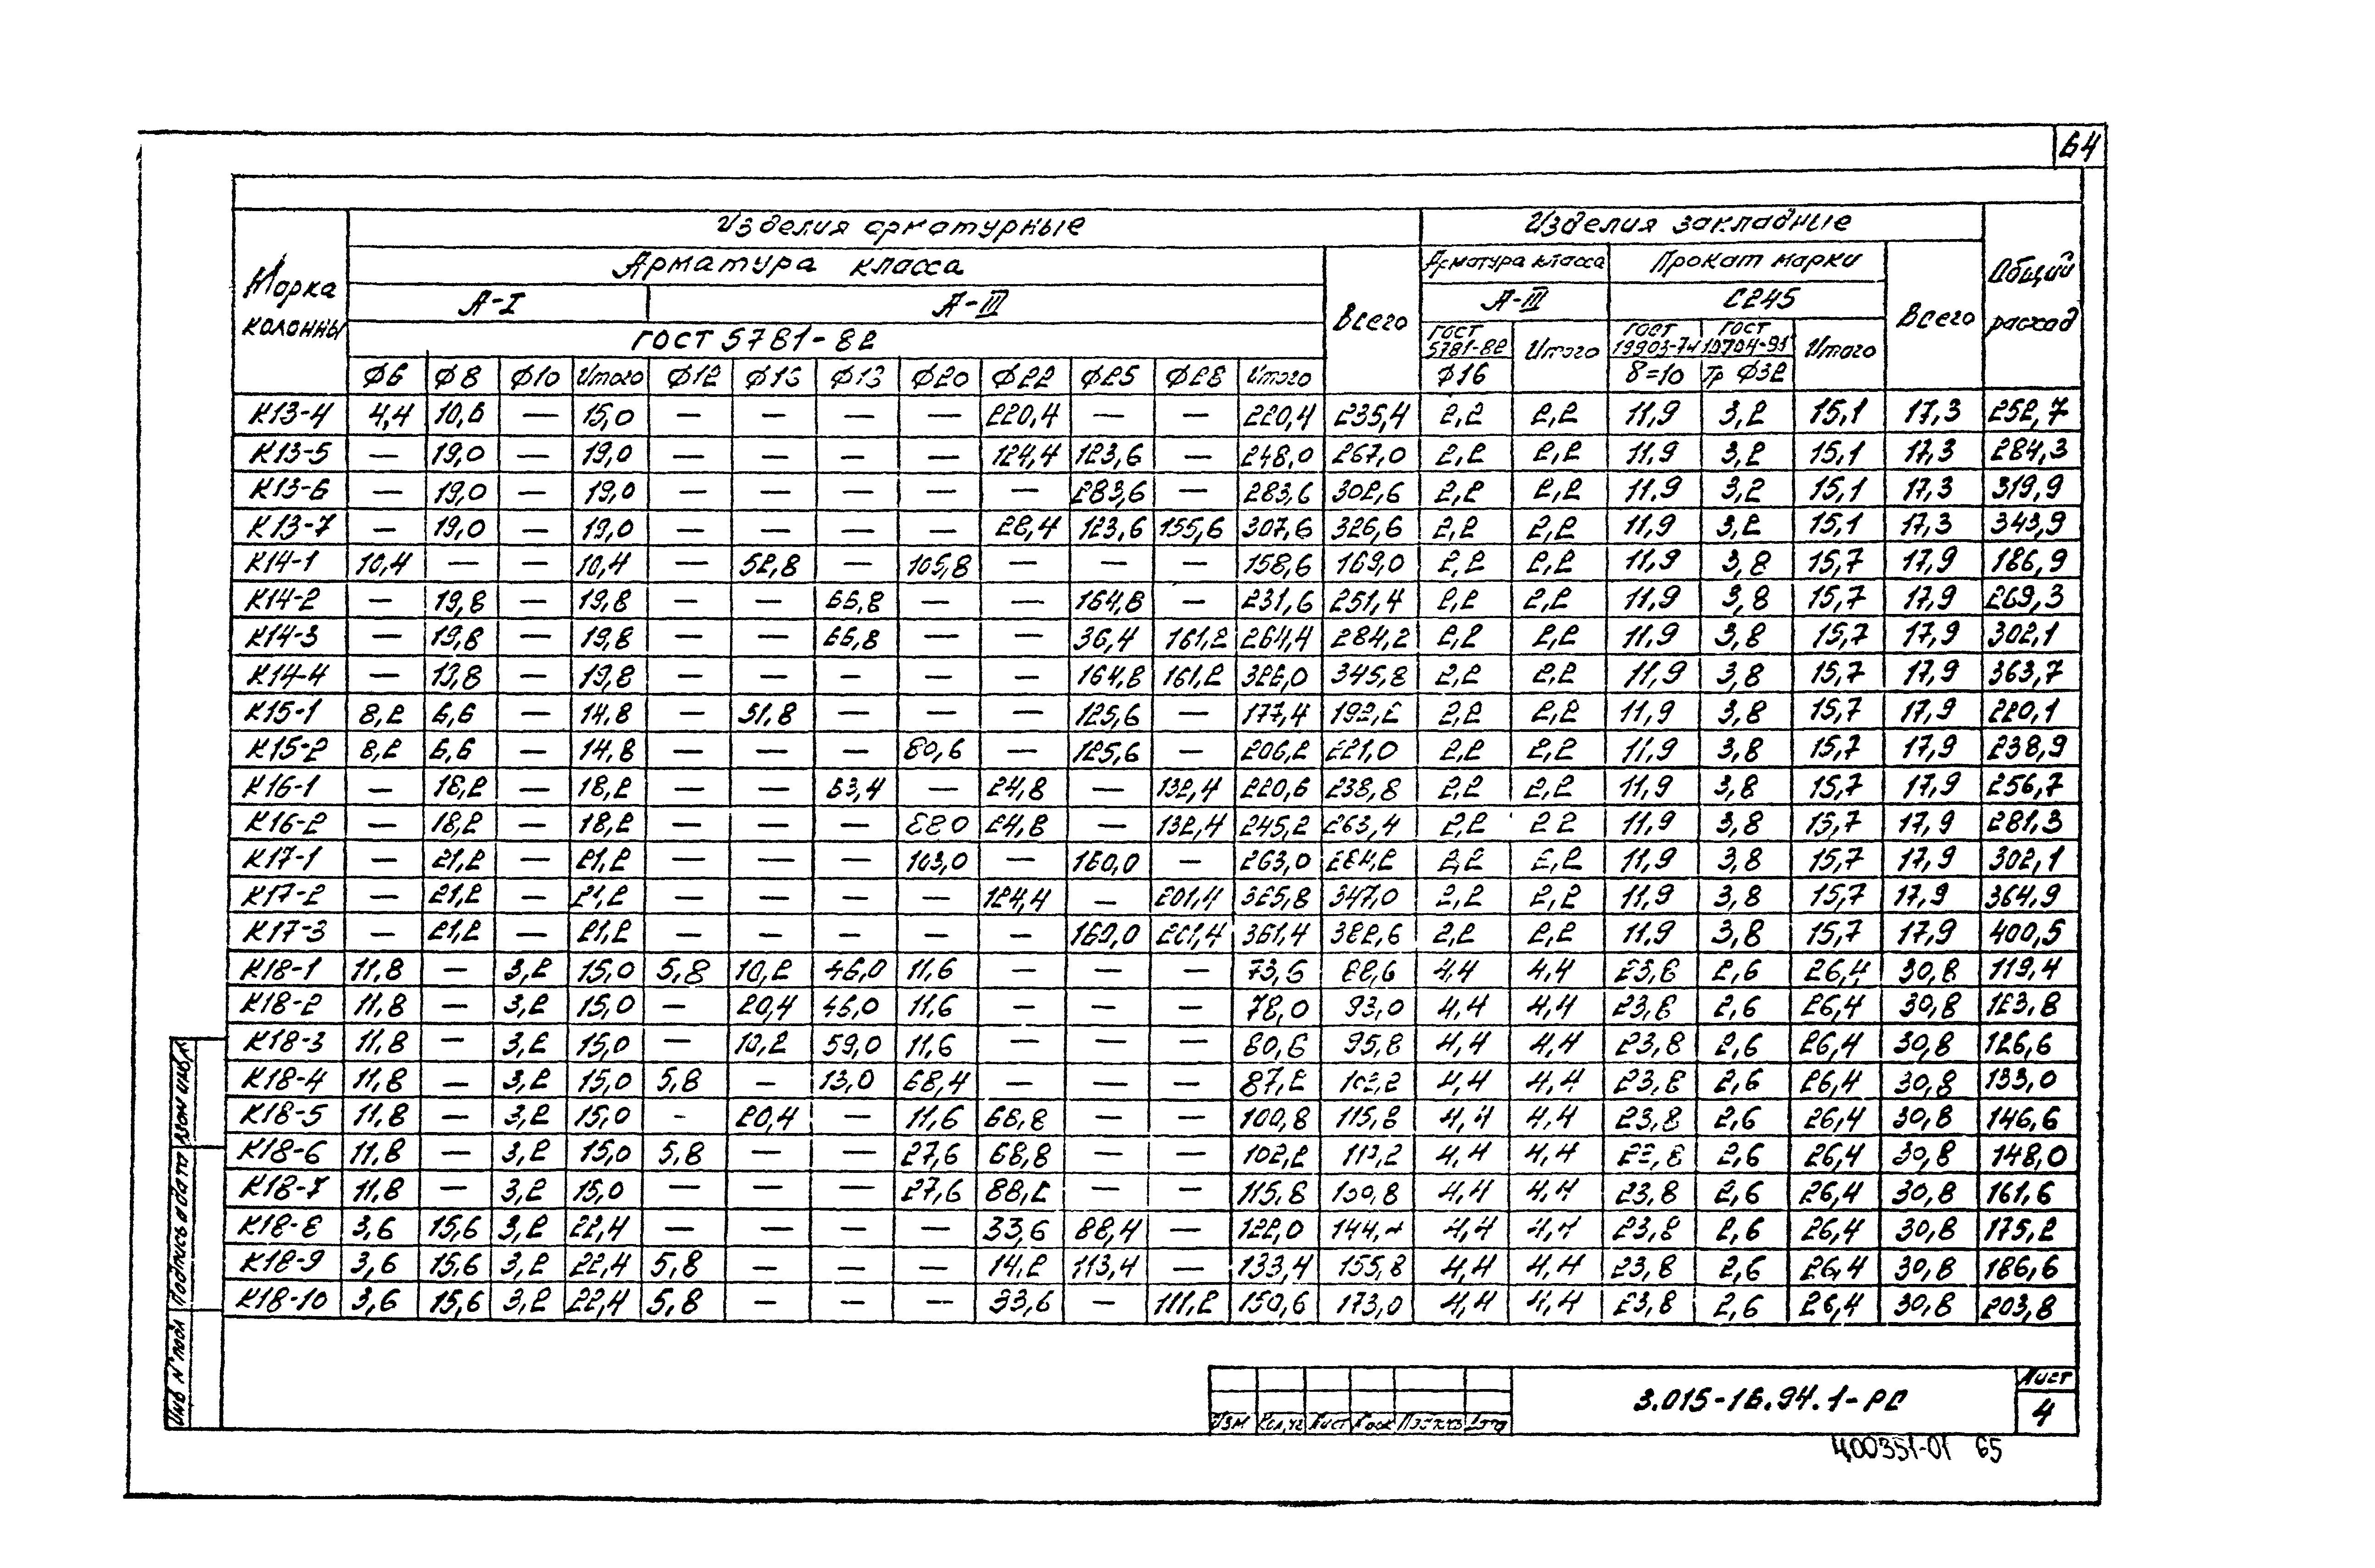 64
Изделия арматурные Изделия закладные
Марка колонны Арматура класса Всего Арматура класса Прокат марки Всего Общий расход
А-I А-III А-III С245
ГОСТ 5781-82 ГОСТ 5781-82 Итого ГОСТ 19903-74 ГОСТ 10704-91 Итого
Ф6 Ф8 Ф10 Итого Ф12 Ф16 Ф18 Ф20 Ф22 Ф25 Ф28 Итого Ф16 δ=10 Тр Ф32
К13-4 4,4 10,6 — 15,0 — — — — 220,4 — — 220,4 235,4 2,2 2,2 11,9 3,2 15,1 17,3 252,7
К13-5 — 19,0 — 19,0 — — — — 124,4 123,6 — 248,0 267,0 2,2 2,2 11,9 3,2 15,1 17,3 284,3
К13-6 — 19,0 — 19,0 — — — — — 283,6 — 283,6 302,6 2,2 2,2 11,9 3,2 15,1 17,3 319,9
К13-7 — 19,0 — 19,0 — — — — 28,4 123,6 155,6 307,6 326,6 2,2 2,2 11,9 3,2 15,1 17,3 343,9
К14-1 10,4 — — 10,4 — 52,8 — 105,8 — — — 158,6 169,0 2,2 2,2 11,9 3,8 15,7 17,9 186,9
К14-2 — 19,8 — 19,8 — — 66,8 — — 164,8 — 231,6 251,4 2,2 2,2 11,9 3,8 15,7 17,9 269,3
К14-3 — 19,8 — 19,8 — — 66,8 — — 36,4 161,2 264,4 284,2 2,2 2,2 11,9 3,8 15,7 17,9 302,1
К14-4 — 19,8 — 19,8 — — — — — 164,8 161,2 326,0 345,8 2,2 2,2 11,9 3,8 15,7 17,9 363,7
К15-1 8,2 6,6 — 14,8 — 51,8 — — — 125,6 — 177,4 192,2 2,2 2,2 11,9 3,8 15,7 17,9 220,1
К15-2 8,2 6,6 — 14,8 — — — 80,6 — 125,6 — 206,2 221,0 2,2 2,2 11,9 3,8 15,7 17,9 238,9
К16-1 — 18,2 — 18,2 — — 63,4 — 24,8 — 132,4 220,6 238,8 2,2 2,2 11,9 3,8 15,7 17,9 256,7
К16-2 — 18,2 — 18,2 — — — 88 0 24,8 — 132,4 245,2 263,4 2,2 2 2 11,9 3,8 15,7 17,9 281,3
К17-1 — 21,2 — 21,2 — — — 103,0 — 160,0 — 263,0 284,2 2,2 2,2 11,9 3,8 15,7 17,9 302,1
К17-2 — 21,2 — 21,2 — — — — 124,4 — 201,4 325,8 347,0 2,2 2,2 11,9 3,8 15,7 17,9 364,9
К17-3 — 21,2 — 21,2 — — — — — 160,0 201,4 361,4 382,6 2,2 2,2 11,9 3,8 15,7 17,9 400,5
К18-1 11,8 — 3,2 15,0 5,8 10,2 46,0 11,6 — — — 73,6 88,6 4,4 4,4 23,8 2,6 26,4 30,8 119,4
К18-2 11,8 — 3,2 15,0 — 20,4 46,0 11,6 — — — 78,0 93,0 4,4 4,4 23,8 2,6 26,4 30,8 123,8
К18-3 11,8 — 3,2 15,0 — 10,2 59,0 11,6 — — — 80,8 95,8 4,4 4,4 23,8 2,6 26,4 30,8 126,6
К18-4 11,8 — 3,2 15,0 5,8 — 13,0 68,4 — — — 87,2 102,2 4,4 4,4 23,8 2,6 26,4 30,8 133,0
К18-5 11,8 — 3,2 15,0 - 20,4 — 11,6 68,8 — — 100,8 115,8 4,4 4,4 23,8 2,6 26,4 30,8 146,6
К18-6 11,8 — 3,2 15,0 5,8 — — 27,6 68,8 — — 102,2 117,2 4,4 4,4 23,8 2,6 26,4 30,8 148,0
К18-7 11,8 — 3,2 15,0 — — — 27,6 88,2 — — 115,8 130,8 4,4 4,4 23,8 2,6 26,4 30,8 161,6
К18-8 3,6 15,6 3,2 22,4 — — — — 33,6 88,4 — 122,0 144,4 4,4 4,4 23,8 2,6 26,4 30,8 175,2
К18-9 3,6 15,6 3,2 22,4 5,8 — — — 14,2 113,4 — 133,4 155,8 4,4 4,4 23,8 2,6 26,4 30,8 186,6
К18-10 3,6 15,6 3,2 22,4 5,8 — — — 33,6 — 111,2 150,6 173,0 4,4 4,4 23,8 2,6 26,4 30,8 203,8
Инв N° подл Подпись и дата Взам инв N
Изм Кол.уч Лист N док Подпись Дата
3.015-1б.94.1-РС
Лист
4
Ц00351-01 65